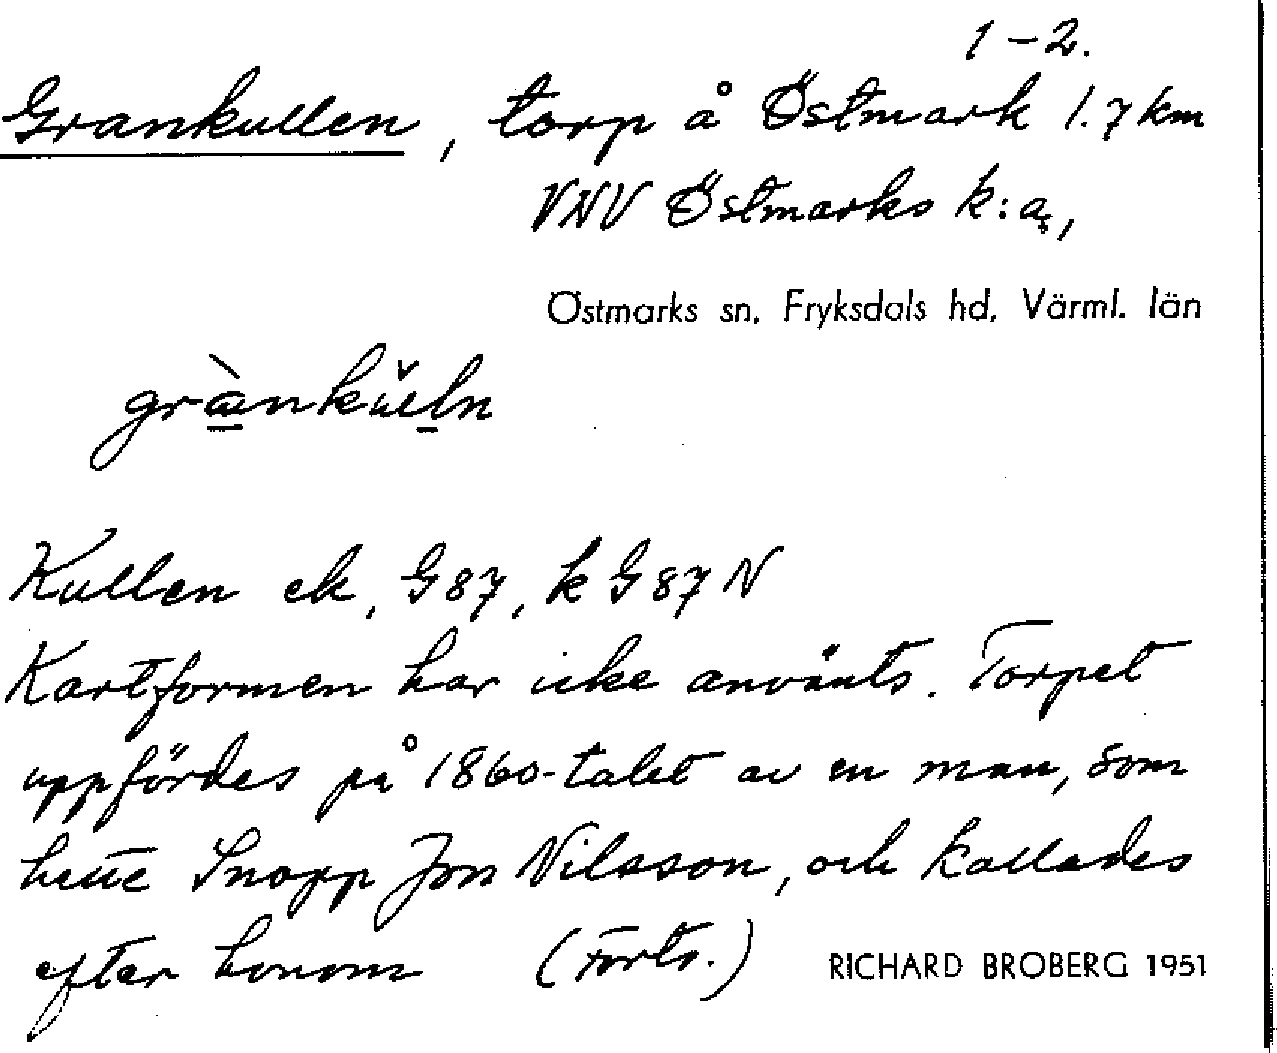 1-2.
Grankullen, torp å Östmark 1.7 km
VNV Östmarks k:a,
Östmarks sn. Fryksdals hd. Värml. län
Kullen ek, G87, k G87 N
Kartformen har icke använts. Torpet
uppfördes på 1860-talet av en man, som
hette Snopp Jon Nilsson, och kallades
efter honom (Forts.)
RICHARD BROBERG 1951